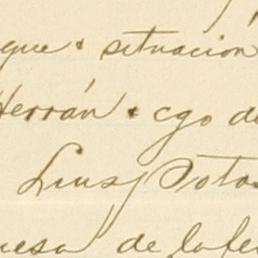 que & situación
Herrán & cgo de
Luis Potos
uesa de la fe